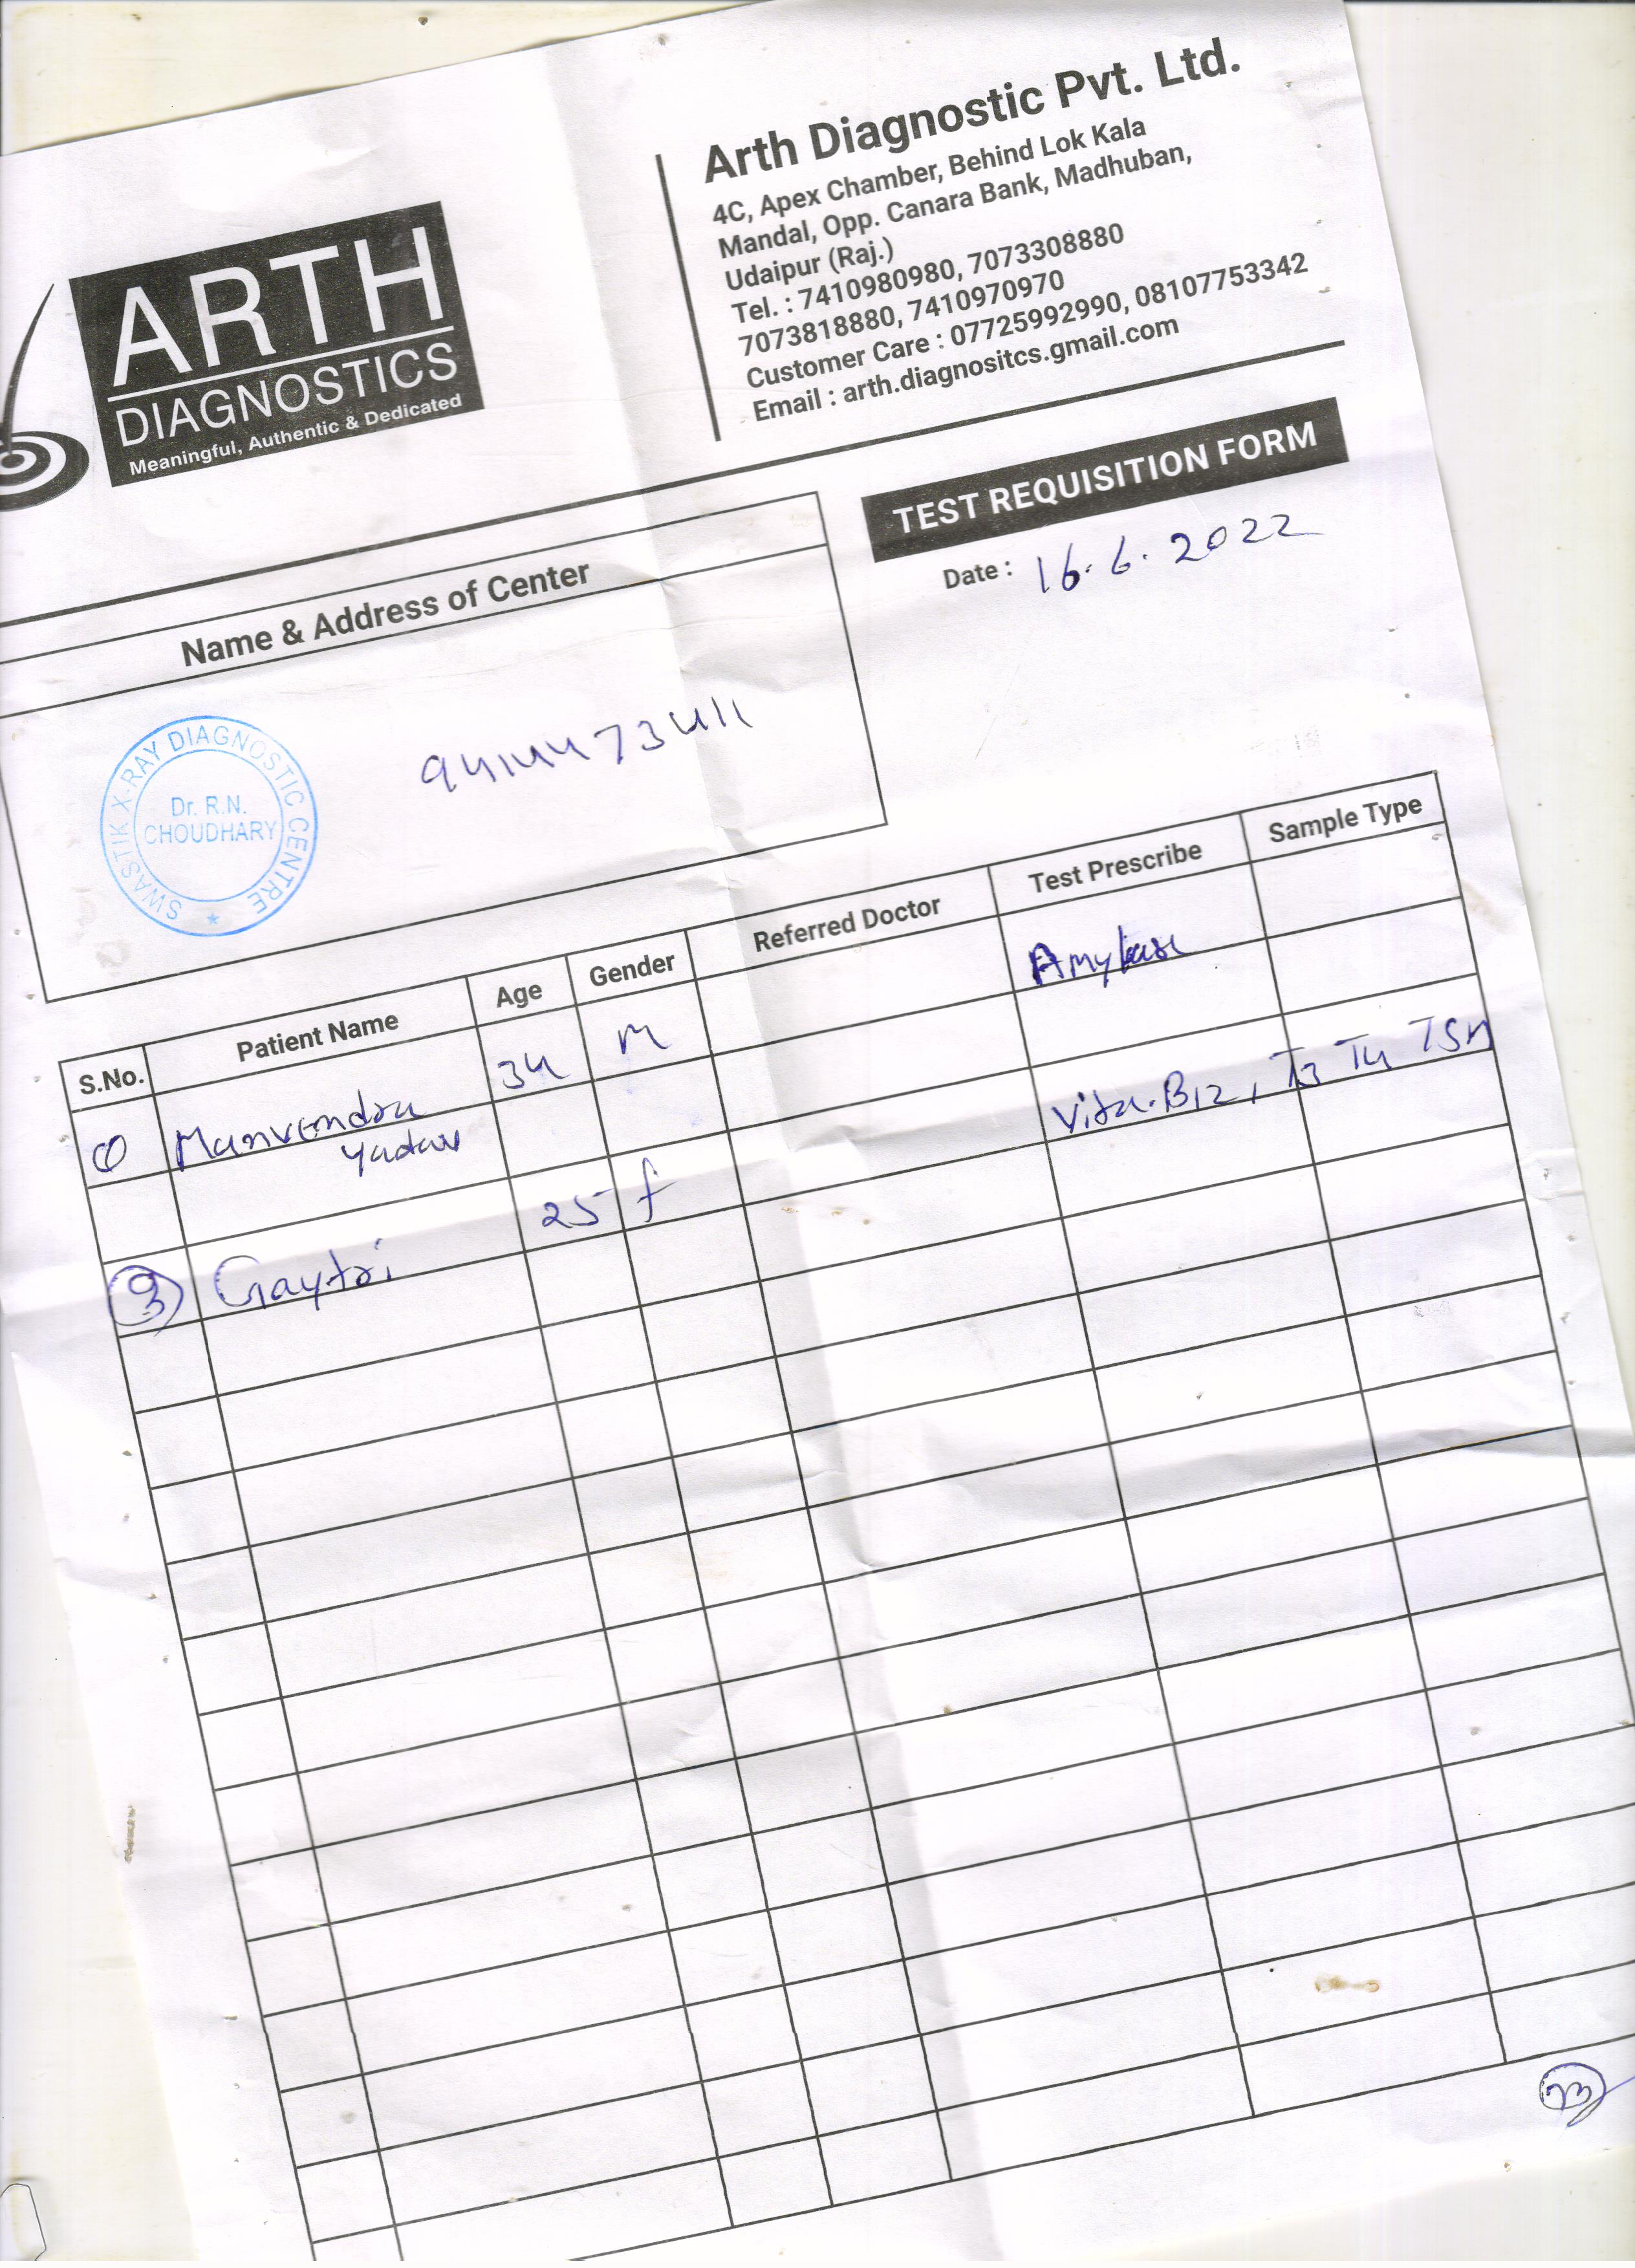 ARTH
DIAGNOSTICS
Meaningful, Authentic & Dedicated
Arth Diagnostic Pvt. Ltd.
4C, Apex Chamber, Behind Lok Kala
Mandal, Opp. Canara Bank, Madhuban,
Udaipur (Raj.)
Tel. : 7410980980, 7073308880
7073818880, 7410970970
Customer Care : 07725992990, 08107753342
Email : arth.diagnositcs.gmail.com
TEST REQUISITION FORM
Date : 16.6.2022
Name & Address of Center
SWASTIK X-RAY DIAGNOSTIC CENTRE
Dr. R.N.
CHOUDHARY
9414473411
S.No. Patient Name Age Gender Referred Doctor Test Prescribe Sample Type
① Manvendra 34 M Amylase
Yadav
Gaytri 25 f Vita.B12, T3 T4 TSH